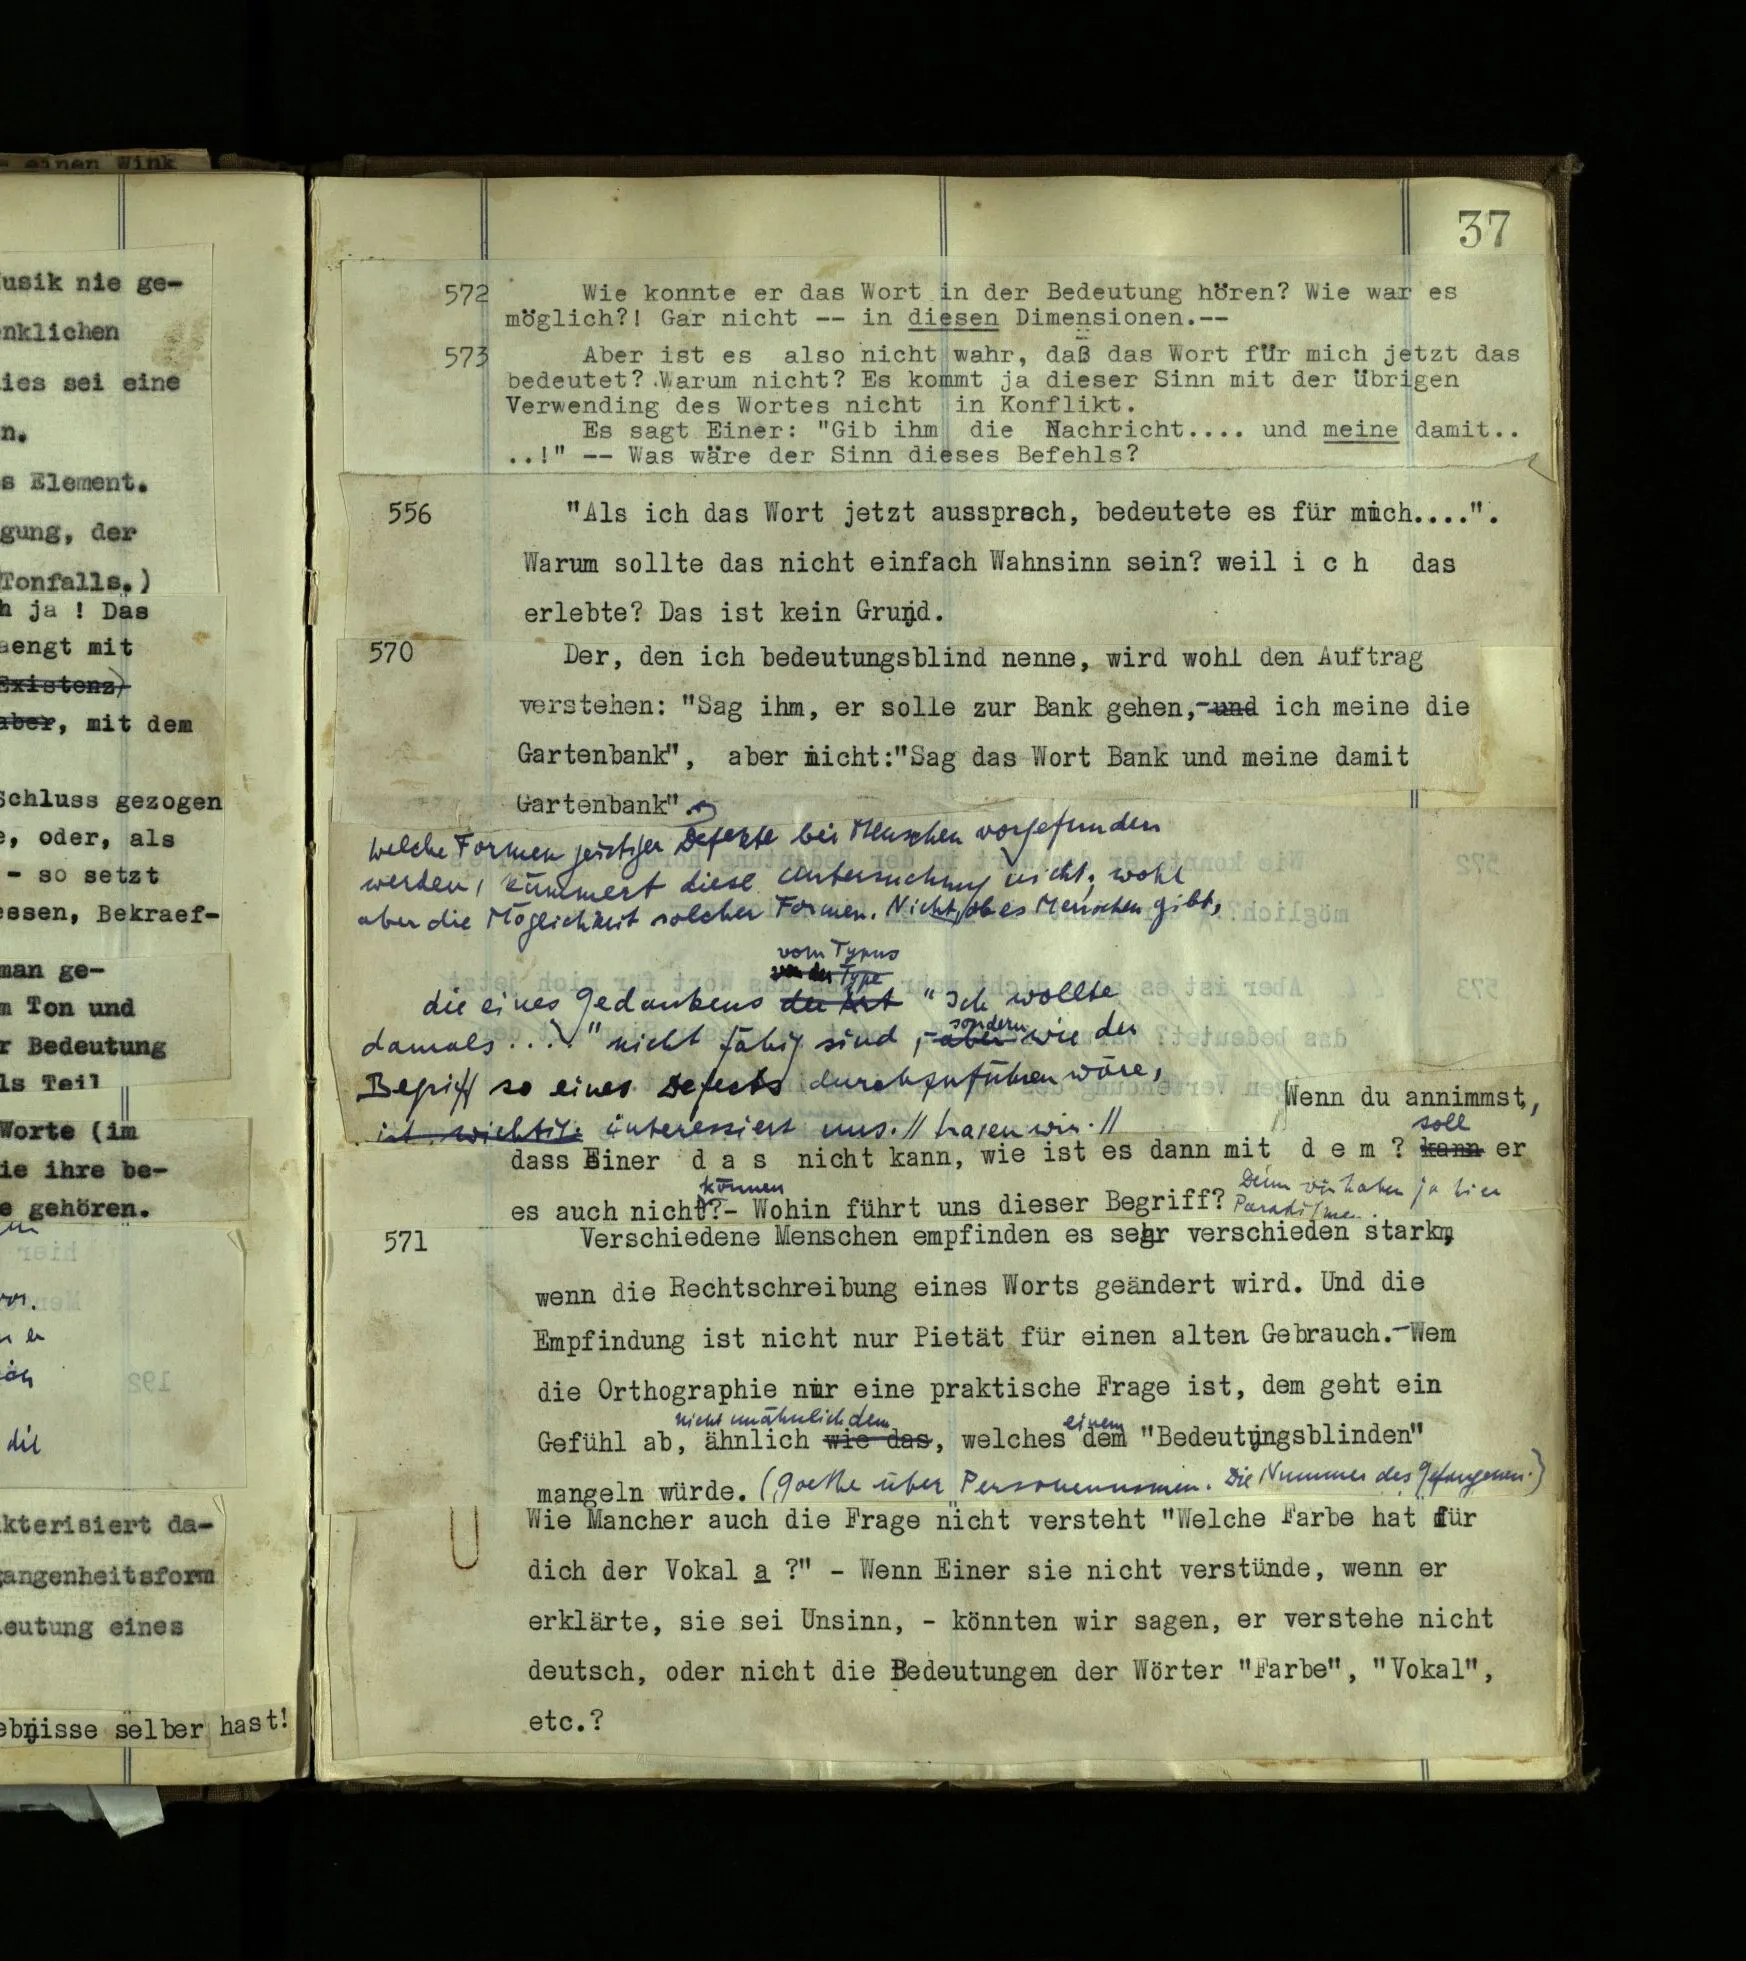 - einen Wink
Musik nie ge-
enklichen
dies sei eine
n.
s Element.
gung, der
Tonfalls.)
h ja ! Das
aengt mit
Existenz)
aber, mit dem
Schluss gezogen
e, oder, als
- so setzt
essen, Bekraef-
man ge-
m Ton und
r Bedeutung
ls Teil
Worte (im
ie ihre be-
e gehören.
die
kterisiert da-
gangenheitsform
deutung eines
ebnisse selber hast!
37
572 Wie konnte er das Wort in der Bedeutung hören? Wie war es
möglich?! Gar nicht -- in diesen Dimensionen.--
573 Aber ist es also nicht wahr, daß das Wort für mich jetzt das
bedeutet? Warum nicht? Es kommt ja dieser Sinn mit der übrigen
Verwending des Wortes nicht in Konflikt.
Es sagt Einer: "Gib ihm die Nachricht.... und meine damit..
..!" -- Was wäre der Sinn dieses Befehls?
556 "Als ich das Wort jetzt aussprach, bedeutete es für mich....".
Warum sollte das nicht einfach Wahnsinn sein? weil i c h das
erlebte? Das ist kein Grund.
570 Der, den ich bedeutungsblind nenne, wird wohl den Auftrag
verstehen: "Sag ihm, er solle zur Bank gehen,- und ich meine die
Gartenbank", aber nicht:"Sag das Wort Bank und meine damit
Gartenbank".
Welche Formen geistiger Defekte bei Menschen vorgefunden
werden, kümmert diese Untersuchung nicht; wohl
aber die Möglichkeit solcher Formen. Nicht, ob es Menschen gibt,
vom Typus
von der Type
die eines Gedankens der Art "Ich wollte
sondern
damals ...." nicht fähig sind, - aber wie der
Begriff so eines Defects durchzuführen wäre,
ist wichtig. interessiert uns. // fragen wir. //
Wenn du annimmst,
soll
dass Einer d a s nicht kann, wie ist es dann mit d e m ? kann er
können Denn wir haben ja hier
es auch nicht?- Wohin führt uns dieser Begriff? Paradigmen.
571 Verschiedene Menschen empfinden es sehr verschieden stark,
wenn die Rechtschreibung eines Worts geändert wird. Und die
Empfindung ist nicht nur Pietät für einen alten Gebrauch.- Wem
die Orthographie nur eine praktische Frage ist, dem geht ein
nicht unähnlich dem einem
Gefühl ab, ähnlich wie das, welches dem "Bedeutungsblinden"
mangeln würde. (Goethe über Personennamen. Die Nummer des Gefangenen.)
Wie Mancher auch die Frage nicht versteht "Welche Farbe hat für
dich der Vokal a ?" - Wenn Einer sie nicht verstünde, wenn er
erklärte, sie sei Unsinn, - könnten wir sagen, er verstehe nicht
deutsch, oder nicht die Bedeutungen der Wörter "Farbe", "Vokal",
etc.?